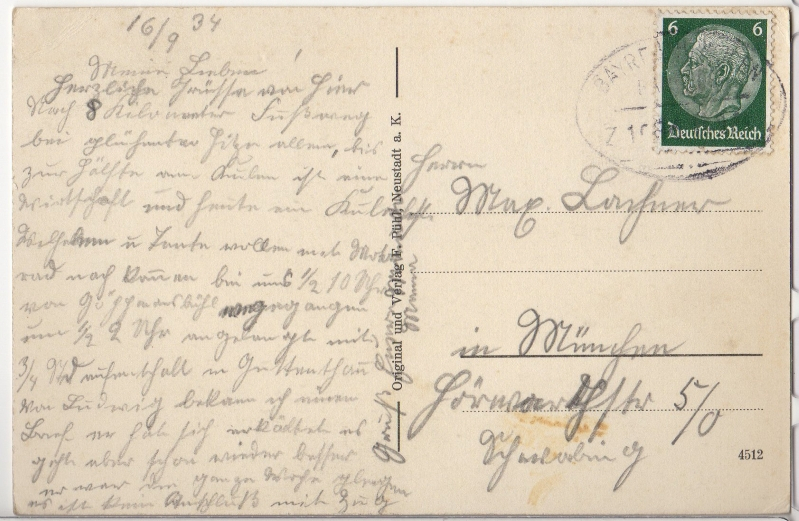 16/9 34
Meine Lieben
Herzliche Grüsse von hier
Nach 8 Kilometer Fußweg
bei glühenter Hitze allein, bis
zur Hälfte am Kulm ist eine
Wirtschaft und heute ein Kulmfest
Wilhelm u Tante wollen mit Motor
rad nach kommen bei uns 1/2 10 Uhr
von Göppmannsbühl wegegangen
um 1/2 2 Uhr angelangt mit
3/4 Std aufenthalt in Guttenthau
Von Ludwig bekam ich einen
Brief er hat sich erkältet es
geht aber schon wieder besser
er war die ganze Woche
es ist kein Anschluß mit Zug
Gruß
Mama
Original und Verlag F. Pühl, Neustadt a. K.
6 6
Deutsches Reich
BAYRE
Z
Herrn
Max. Lachner
in München
Hörwarthstr 5/0
Schwabing
4512